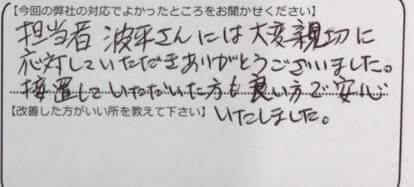 【今回の弊社の対応でよかったところをお聞かせください】
担当者 波平さんには大変親切に
応対していただきありがとうございました。
接置していただいた方も良い方で安心
【改善した方がいい所を教えて下さい】いたしました。